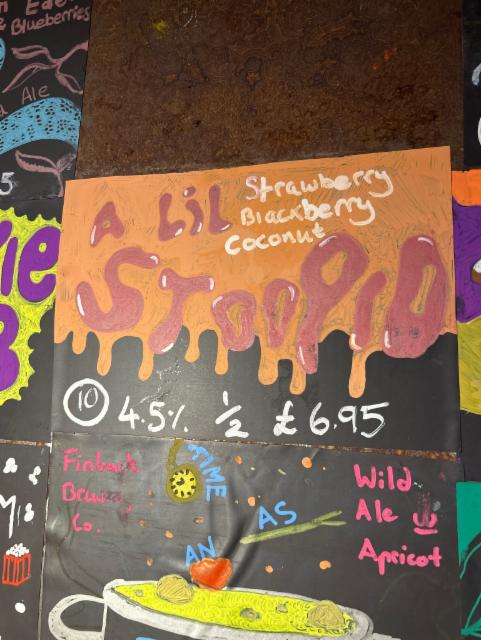 & Blueberries
Ale
5
A LiL
Strawberry
Blackberry
Coconut
STOOPID
10 4.5% ½ £6.95
Finback
Brewing
Co.
TIME
AS
AN
Wild
Ale w
Apricot